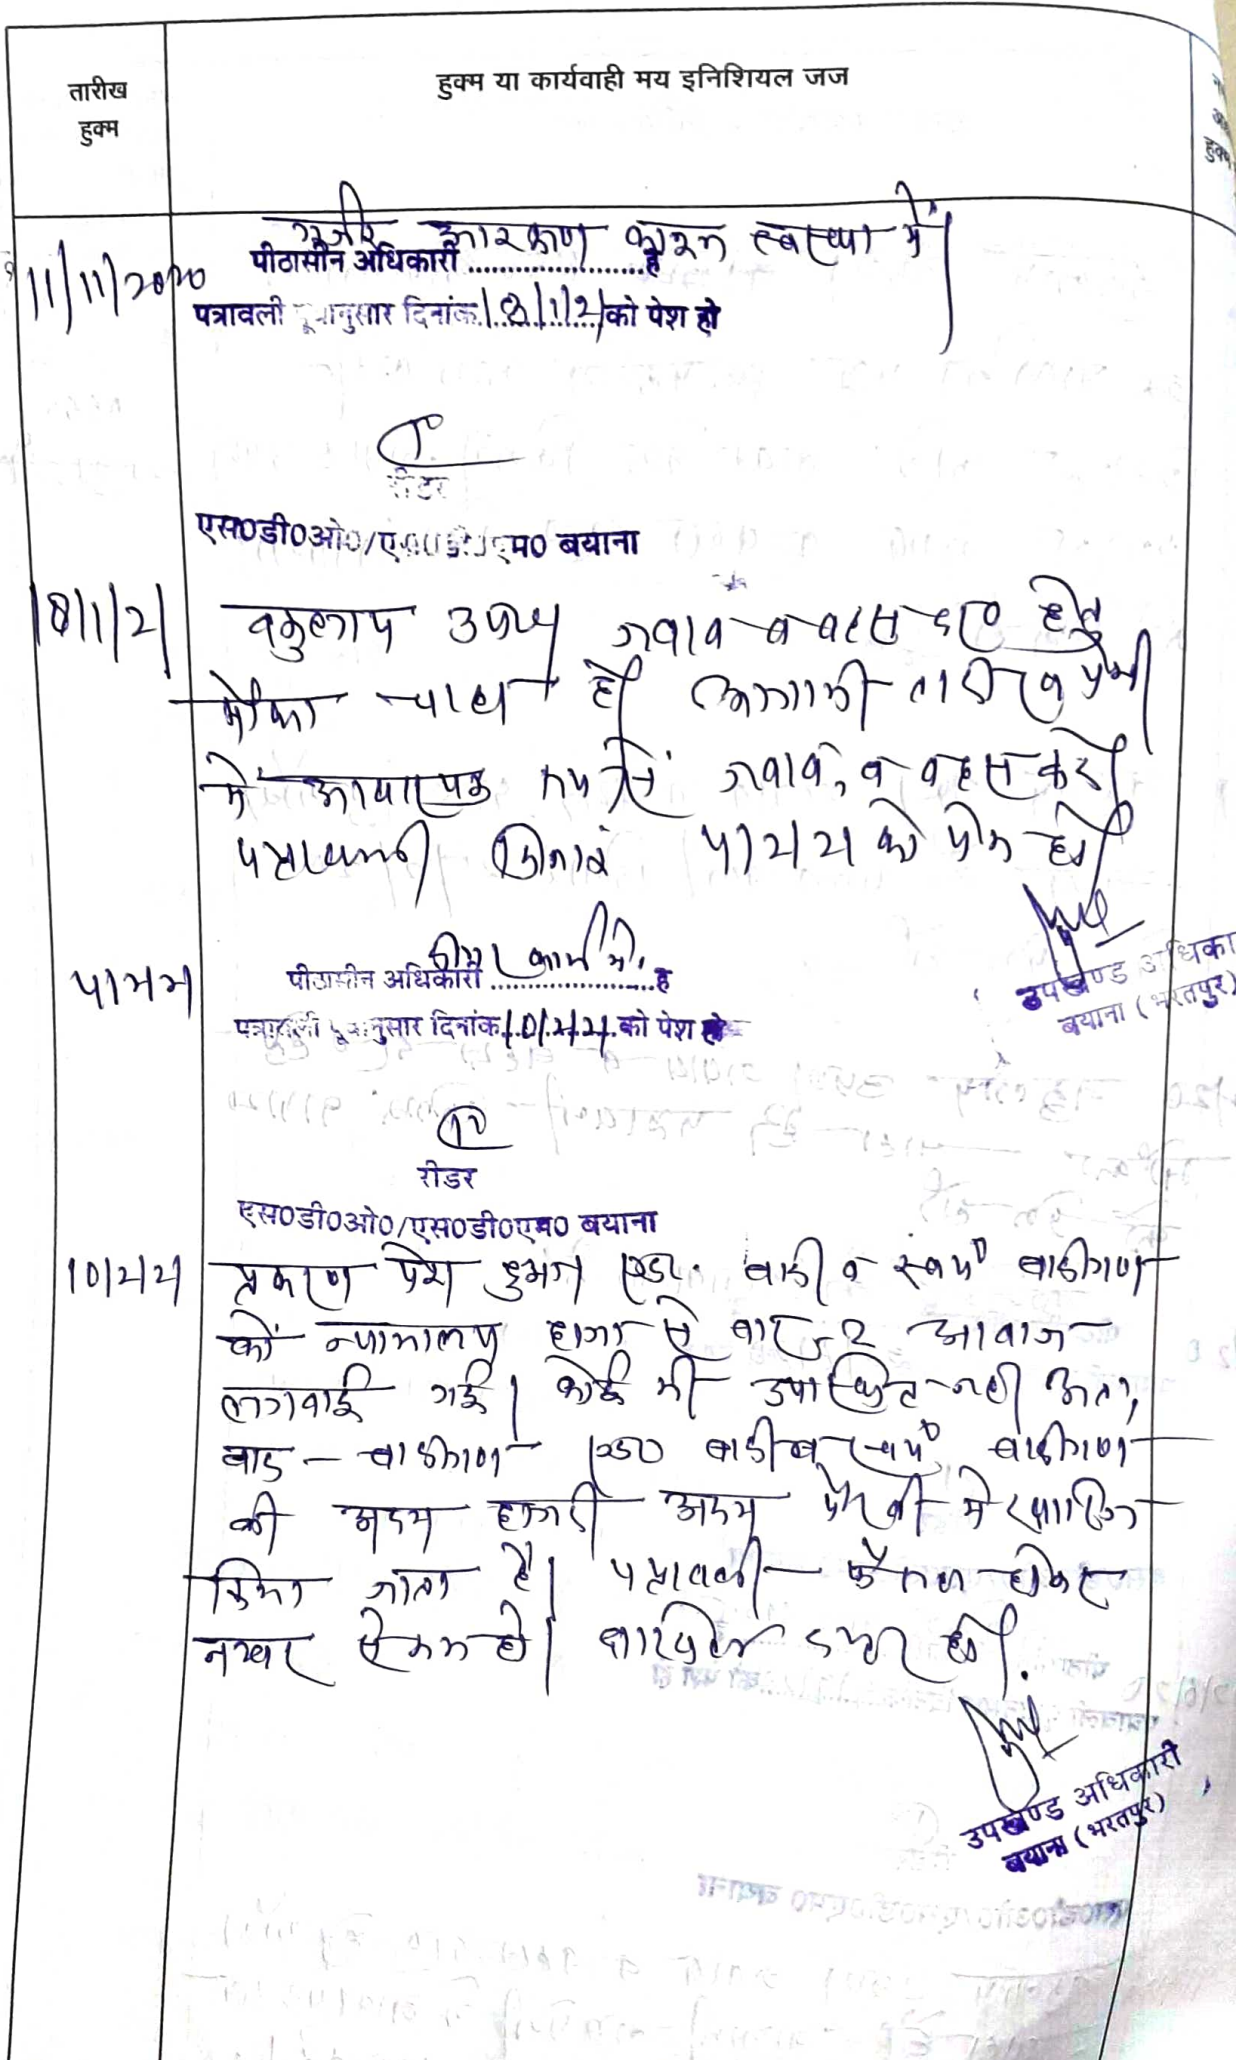 तारीख
हुक्म
हुक्म या कार्यवाही मय इनिशियल जज
हुक्म
11/11/2020
गुर्जर आरक्षण कानून व्यवस्था में
पीठासीन अधिकारी ........................है
पत्रावली पूर्वानुसार दिनांक 18/1/21 को पेश हो
रीडर
एस0डी0ओ0/एस0डी0एम0 बयाना
18/1/21
वकुलाय उपप जवाब व बहस हेतु
मौका चाहा है। आगामी तारीख पेशी
में आवश्यक रूप से जवाब, व बहस करें।
पत्रावली दिनांक 5/2/21 को पेश हो।
उपखण्ड अधिकारी
बयाना (भरतपुर)
5/2/21
पीठासीन अधिकारी ........................है
पत्रावली पूर्वानुसार दिनांक 10/2/21 को पेश हो
रीडर
एस0डी0ओ0/एस0डी0एम0 बयाना
10/2/21
प्रकरण पेश हुआ। एड0 वादी व स्वयं वादीगण
को न्यायालय हाजा से बार-2 आवाज
लगवाई गई। कोई भी उपस्थित नहीं अतः
वाद वादीगण एड0 वादी व स्वयं वादीगण
की अदम हाजरी अदम पैरवी में खारिज
किया जाता है। पत्रावली फैसल होकर
नम्बर से कम हो। दाखिल दफ्तर हो।
उपखण्ड अधिकारी
बयाना (भरतपुर)